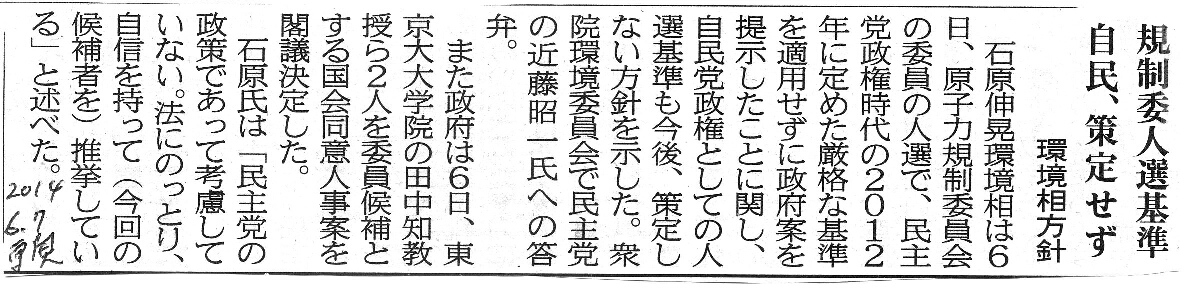 規制委人選基準
自民、策定せず
環境相方針
石原伸晃環境相は6
日、原子力規制委員会
の委員の人選で、民主
党政権時代の2012
年に定めた厳格な基準
を適用せずに政府案を
提示したことに関し、
自民党政権としての人
選基準も今後、策定し
ない方針を示した。衆
院環境委員会で民主党
の近藤昭一氏への答
弁。
また政府は6日、東
京大大学院の田中知教
授ら2人を委員候補と
する国会同意人事案を
閣議決定した。
石原氏は「民主党の
政策であって考慮して
いない。法にのっとり、
自信を持って(今回の
候補者を)推挙してい
る」と述べた。
2014
6.7